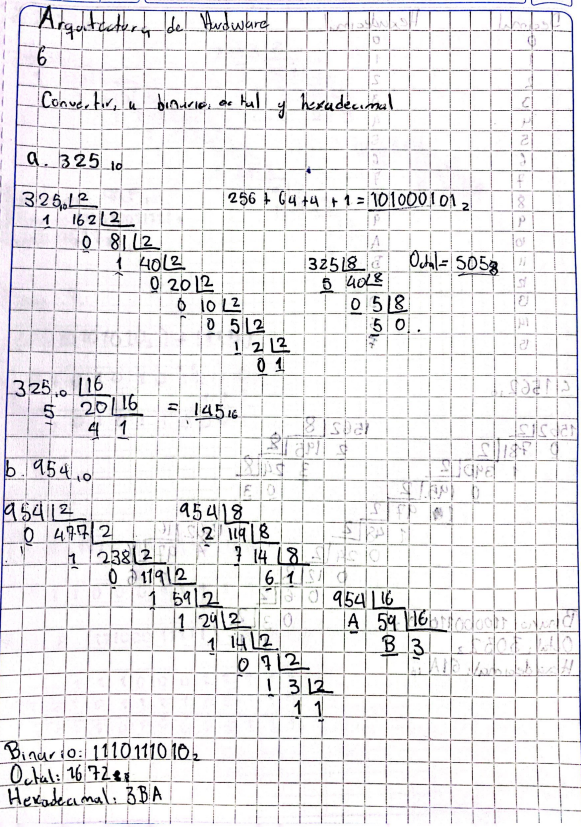 Arquitectura de Hardware
6
Convertir, a binario, octal y hexadecimal
a. 325₁₀
325₁₀ |2
1 162 |2
0 81 |2
1 40 |2
0 20 |2
0 10 |2
0 5 |2
1 2 |2
0 1
256 + 64 + 4 + 1 = 101000101₂
325 |8
5 40 |8
0 5 |8
5 0
Octal = 505₈
325₁₀ |16
5 20 |16
4 1
= 145₁₆
b. 954₁₀
954 |2
0 477 |2
1 238 |2
0 119 |2
1 59 |2
1 29 |2
1 14 |2
0 7 |2
1 3 |2
1 1
954 |8
2 119 |8
7 14 |8
6 1
954 |16
A 59 |16
B 3
Binario: 1110111010₂
Octal: 1672₈
Hexadecimal: 3BA